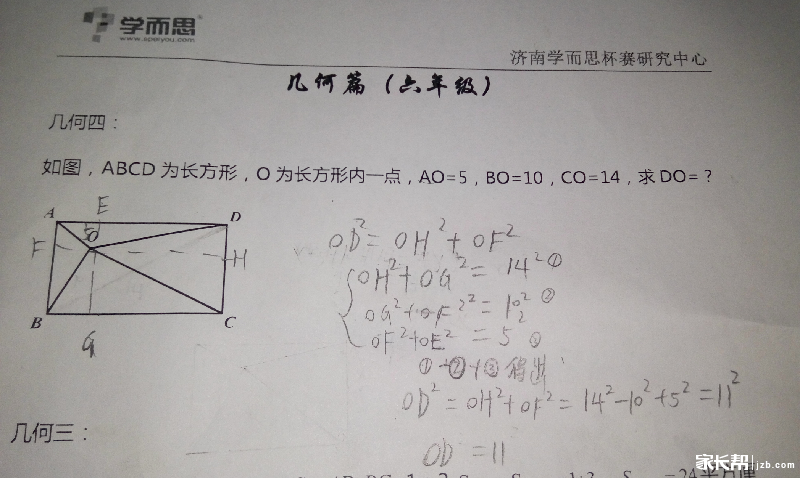 学而思
www.speiyou.com
济南学而思杯赛研究中心
几何篇（六年级）
几何四：
如图，ABCD 为长方形，O 为长方形内一点，AO=5，BO=10，CO=14，求 DO=？
A
E
D
5
O
F
H
B
G
C
OD²= OH²+OF²
OH²+OG² = 14² ①
OG²+OF² = 10² ②
OF²+OE² = 5² ③
①-②+③ 得出:
OD² = OH²+OF² = 14²-10²+5² = 11²
OD = 11
几何三：
家长帮 jzb.com